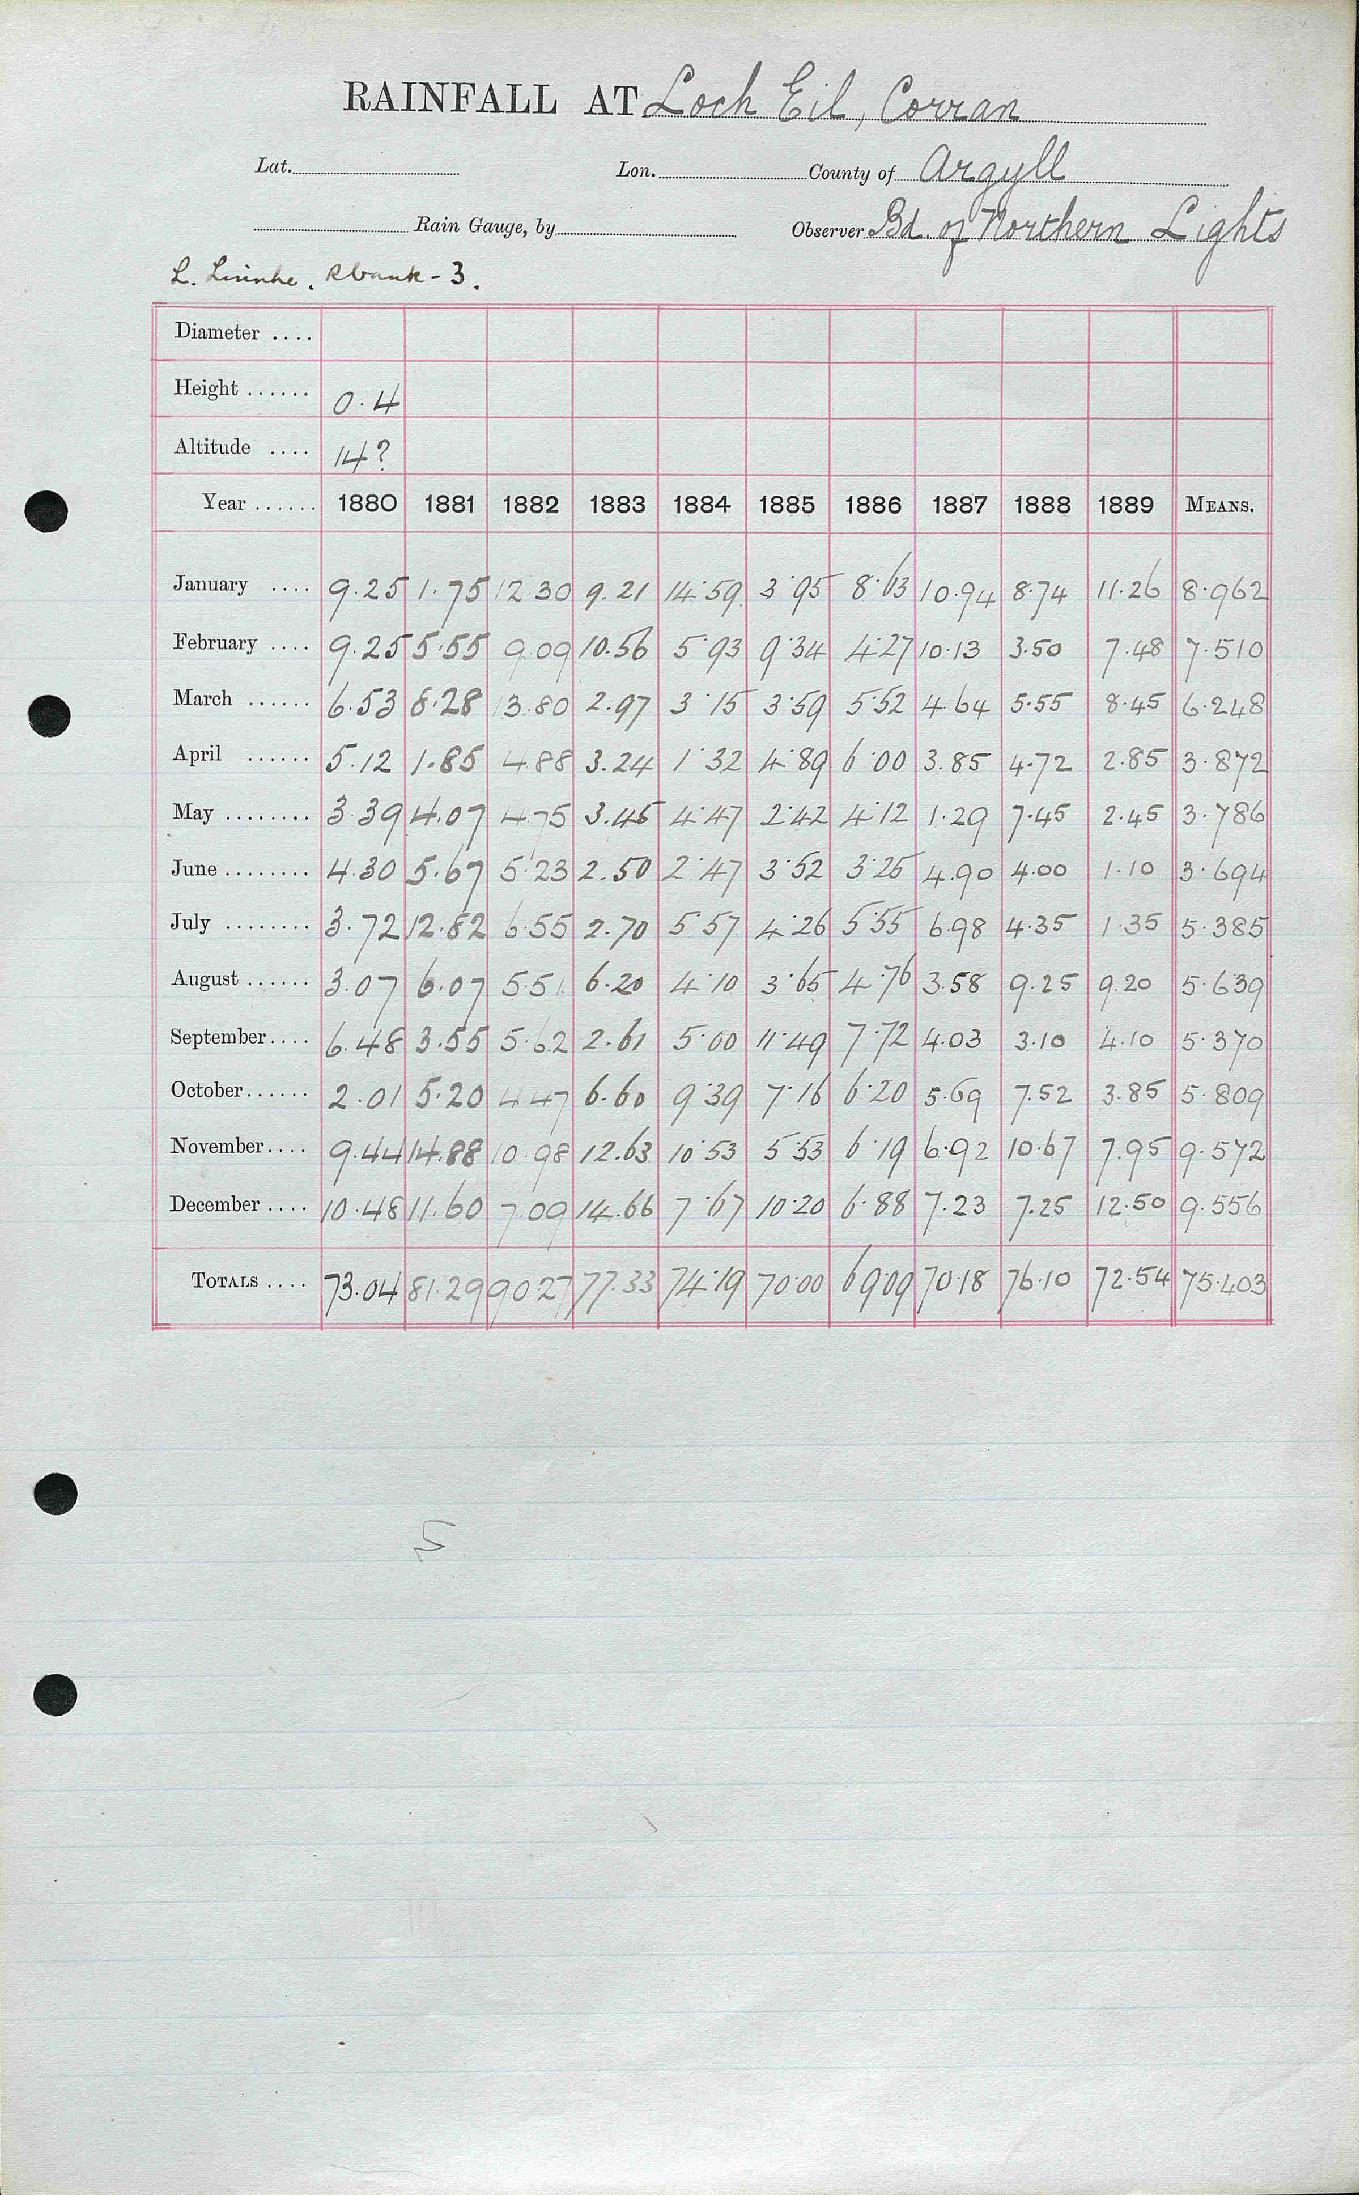 RAINFALL AT Loch Eil, Corran
Lat. Lon. County of Argyll
Rain Gauge, by Observer Bd. of Northern Lights
L. Linnhe. Rbank - 3.
Diameter ....
Height ...... 0.4
Altitude .... 14?
Year ...... 1880 1881 1882 1883 1884 1885 1886 1887 1888 1889 MEANS.
January .... 9.25 1.75 12.30 9.21 14.59 3.95 8.63 10.94 8.74 11.26 8.962
February .... 9.25 5.55 9.09 10.56 5.93 9.34 4.27 10.13 3.50 7.48 7.510
March ...... 6.53 8.28 13.80 2.97 3.15 3.59 5.52 4.64 5.55 8.45 6.248
April ...... 5.12 1.85 4.88 3.24 1.32 4.89 6.00 3.85 4.72 2.85 3.872
May ........ 3.39 4.07 4.75 3.45 4.47 2.42 4.12 1.29 7.45 2.45 3.786
June ........ 4.30 5.67 5.23 2.50 2.47 3.52 3.25 4.90 4.00 1.10 3.694
July ........ 3.72 12.82 6.55 2.70 5.57 4.26 5.55 6.98 4.35 1.35 5.385
August ...... 3.07 6.07 5.51 6.20 4.10 3.65 4.76 3.58 9.25 9.20 5.639
September .... 6.48 3.55 5.62 2.61 5.00 11.49 7.72 4.03 3.10 4.10 5.370
October ...... 2.01 5.20 4.47 6.60 9.39 7.16 6.20 5.69 7.52 3.85 5.809
November .... 9.44 14.88 10.98 12.63 10.53 5.53 6.19 6.92 10.67 7.95 9.572
December .... 10.48 11.60 7.09 14.66 7.67 10.20 6.88 7.23 7.25 12.50 9.556
TOTALS .... 73.04 81.29 90.27 77.33 74.19 70.00 69.09 70.18 76.10 72.54 75.403
5